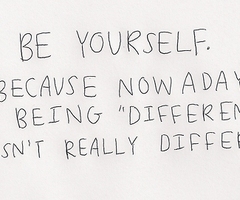 BE YOURSELF.
BECAUSE NOWADAY
BEING "DIFFEREN
SN'T REALLY DIFFE